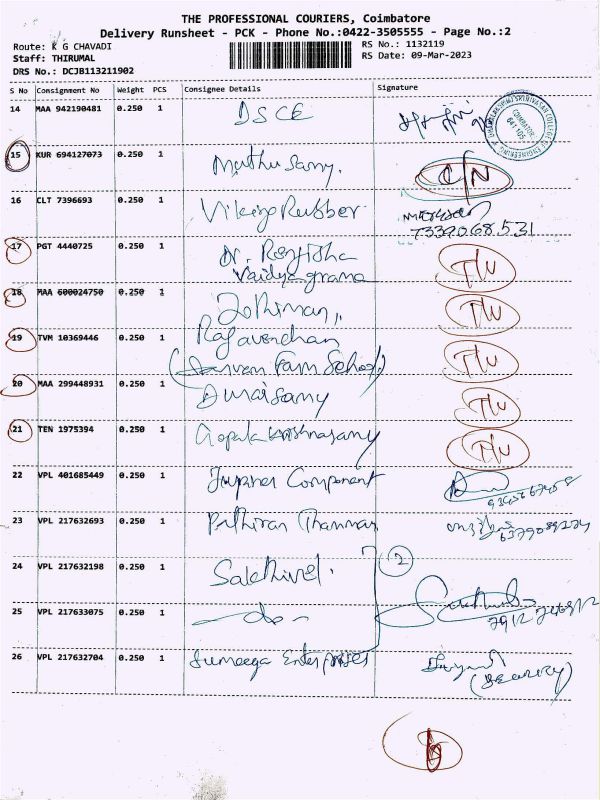 THE PROFESSIONAL COURIERS, Coimbatore
Delivery Runsheet - PCK - Phone No.:0422-3505555 - Page No.:2
Route: K G CHAVADI
RS No.: 1132119
Staff: THIRUMAL
RS Date: 09-Mar-2023
DRS No.: DCJB113211902
S No Consignment No Weight PCS Consignee Details Signature
14 MAA 942190481 0.250 1 DSCE
COIMBATORE 641 105
15 KUR 694127073 0.250 1 Muthu Samy. C/N
16 CLT 7396693 0.250 1 Viking Rubber
7339068531
17 PGT 4440725 0.250 1 Dr. Renjisha T/U
Vaidyagrama
18 MAA 600024750 0.250 1 Jothimani, T/U
19 TVM 10369446 0.250 1 Ragavendran T/U
Farm School)
20 MAA 299448931 0.250 1 Duraisamy T/U
21 TEN 1975394 0.250 1 Gopalakrishnasamy T/U
22 VPL 401685449 0.250 1 Component
23 VPL 217632693 0.250 1
24 VPL 217632198 0.250 1 Sakthivel. 2
25 VPL 217633075 0.250 1 - do -
26 VPL 217632704 0.250 1 Sumeega Enterprises